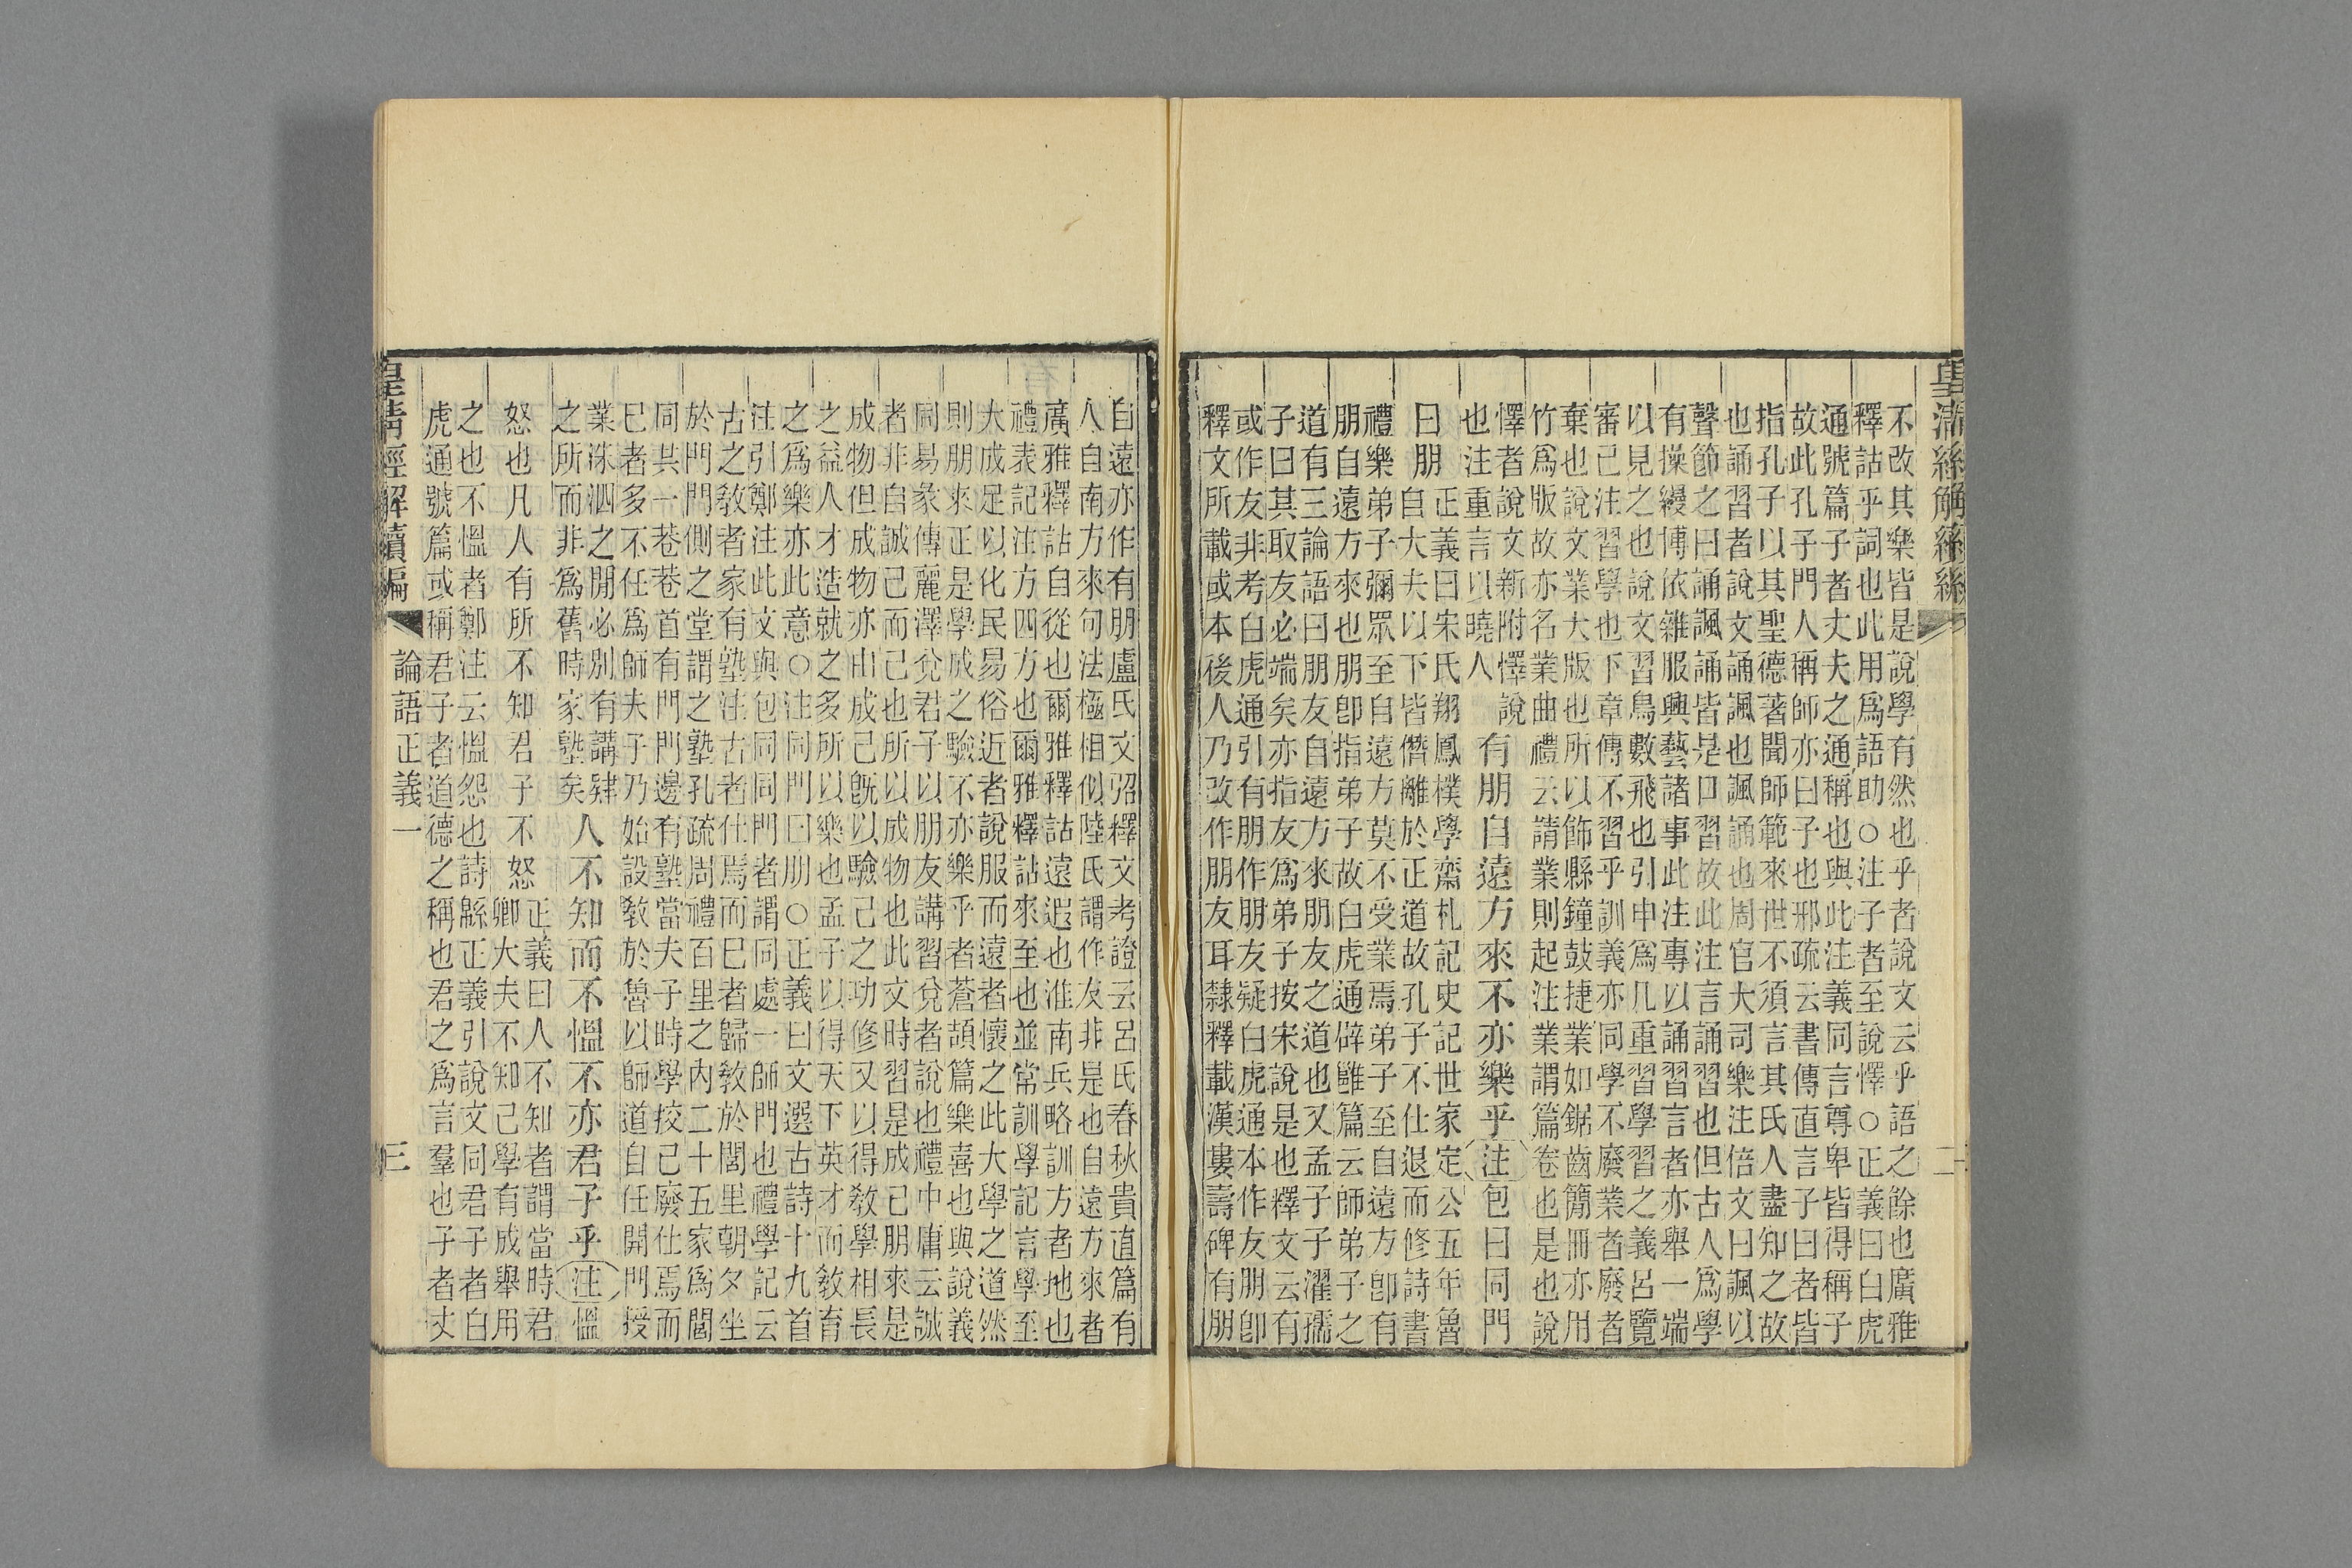 皇清
二
不改其樂皆是說學有然也乎者說文云乎語之餘也廣雅
釋詁乎詞也此用爲語助○注子者至說懌○正義曰白虎
通號篇子者丈夫之通稱也與此注義同言尊卑皆得稱子
故此孔子門人稱師亦曰子也邢疏云書傳直言子曰者皆
指孔子以其聖德著聞師範來世不須言其氏人盡知之故
也誦習者說文誦諷也諷誦也周官大司樂注倍文曰諷以
聲節之曰誦諷誦皆是口習故此注言誦習也但古人爲學
有操縵博依雜服興藝諸事此注專以誦習言者亦舉一端
以見之也說文習鳥數飛也引申爲凡重習學習之義呂覽
審己注習學也下章傳不習乎訓義亦同學不廢業者廢者
棄也說文業大版也所以飾縣鐘鼓捷業如鋸齒簡冊亦用
竹爲版故亦名業曲禮云請業則起注業謂篇卷也是也說
懌者說文新附懌說
也注重言以曉人
有朋自遠方來不亦樂乎注包曰同門
曰朋
正義曰宋氏翔鳳樸學齋札記史記世家定公五年魯
自大夫以下皆僭離於正道故孔子不仕退而修詩書
禮樂弟子彌眾至自遠方莫不受業焉弟子至自遠方卽有
朋自遠方來也朋卽指弟子故白虎通辟雝篇云師弟子之
道有三論語曰朋友自遠方來朋友之道也又孟子子濯孺
子曰其取友必端矣亦指友爲弟子按宋說是也釋文云有
或作友非考白虎通引有朋作朋友疑白虎通本作友朋卽
釋文所載或本後人乃改作朋友耳隸釋載漢婁壽碑有朋
自遠亦作有朋盧氏文弨釋文考證云呂氏春秋貴直篇有
人自南方來句法極相似陸氏謂作友非是也自遠方來者
廣雅釋詁自從也爾雅釋詁遠遐也淮南兵略訓方者地也
禮表記注方四方也爾雅釋詁來至也並常訓學記言學至
大成足以化民易俗近者說服而遠者懷之此大學之道然
則朋來正是學成之驗不亦樂乎者蒼頡篇樂喜也與說義
同易彖傳麗澤兌君子以朋友講習兌者說也禮中庸云誠
者非自誠己而已也所以成物也此文時習是成己朋來是
成物但成物亦由成己旣以驗己之功修又以得敎學相長
之益人才造就之多所以樂也孟子以得天下英才而敎育
之爲樂亦此意○注同門曰朋○正義曰文選古詩十九首
注引鄭注此文與包同同門者謂同處一師門也禮學記云
古之敎者家有塾注古者仕焉而已者歸敎於閭里朝夕坐
於門門側之堂謂之塾孔疏周禮百里之內二十五家爲閭
同共一巷巷首有門門邊有塾當夫子時學挍已廢仕焉而
已者多不任爲師夫子乃始設敎於魯以師道自任開門授
業洙泗之閒必別有講肄
之所而非爲舊時家塾矣
人不知而不慍不亦君子乎注慍
怒也凡人有所不知君子不怒
正義曰人不知者謂當時君
卿大夫不知己學有成舉用
之也不慍者鄭注云慍怨也詩緜正義引說文同君子者白
虎通號篇或稱君子者道德之稱也君之爲言羣也子者丈
皇清經解續編
論語正義一
三